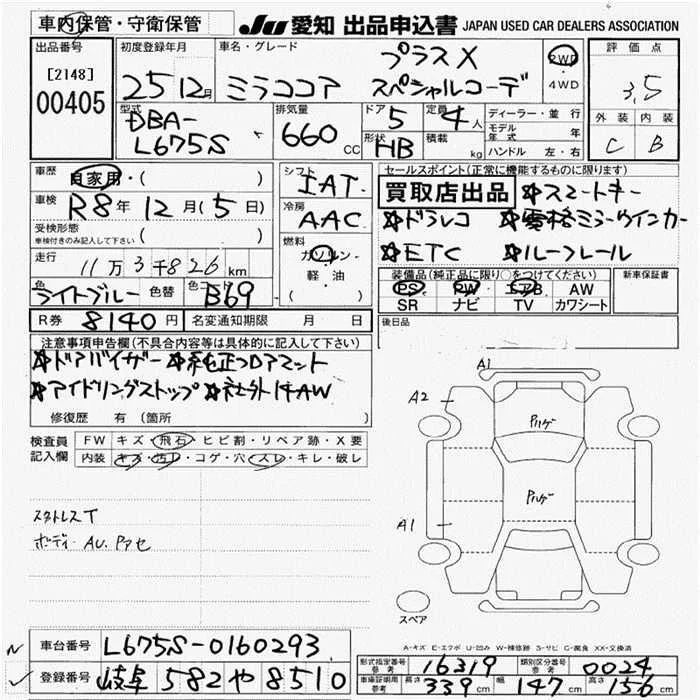 車内保管・守衛保管 JU 愛知 出品申込書 JAPAN USED CAR DEALERS ASSOCIATION
出品番号 初度登録年月 車名・グレード 評価点
[2148] 00405 25 12月 ミラココア プラスX スペシャルコーデ 2WD・4WD 3,5
型式 排気量 ドア 定員 ディーラー・並行 外装 内装
DBA-L675S 660CC 5 4人 モデル年式 年 C B
形状 HB 積載 kg ハンドル 左・右
車歴 自家用・( ) シフト IAT セールスポイント(正常に機能するものに限ります)
車検 R8年12月(5日) 冷房 AAC 買取店出品 ☆スマートキー
受検形態 車検付きのみ記入して下さい ( ) ☆ドラレコ ☆電格ミラーウインカー
走行 11万3千826km 燃料 ガソリン・軽・油 ( ) ☆ETC ☆ルーフレール
色 ライトブルー 色替 色コード B69 装備品(純正品に限り○をつけてください) 新車保証書
PS PW エアB AW
SR ナビ TV カワシート
R券 8140円 名変通知期限 月 日 後日品
注意事項申告欄(不具合内容等は具体的に記入して下さい)
☆ドアバイザー ☆純正フロアマット
☆アイドリングストップ ☆社外14AW
修復歴 有 (箇所
検査員記入欄 FW キズ・飛石・ヒビ割・リペア跡・X要
内装 キズ・汚レ・コゲ・穴・スレ・キレ・破レ
A1
A2 Pルゲ
Pルゲ
A1
スタトレスT
ボディーAU.Pアセ
スペア
A-キズ E-エクボ U-凹み W-補修跡 S-サビ C-腐食 XX-交換済
車台番号 L675S-0160293 型式指定番号 参考 16319 類別区分番号 参考 0024
登録番号 岐阜 582 や 8510 車庫証明用 参考 長さ 339cm 幅 147cm 高さ 156cm